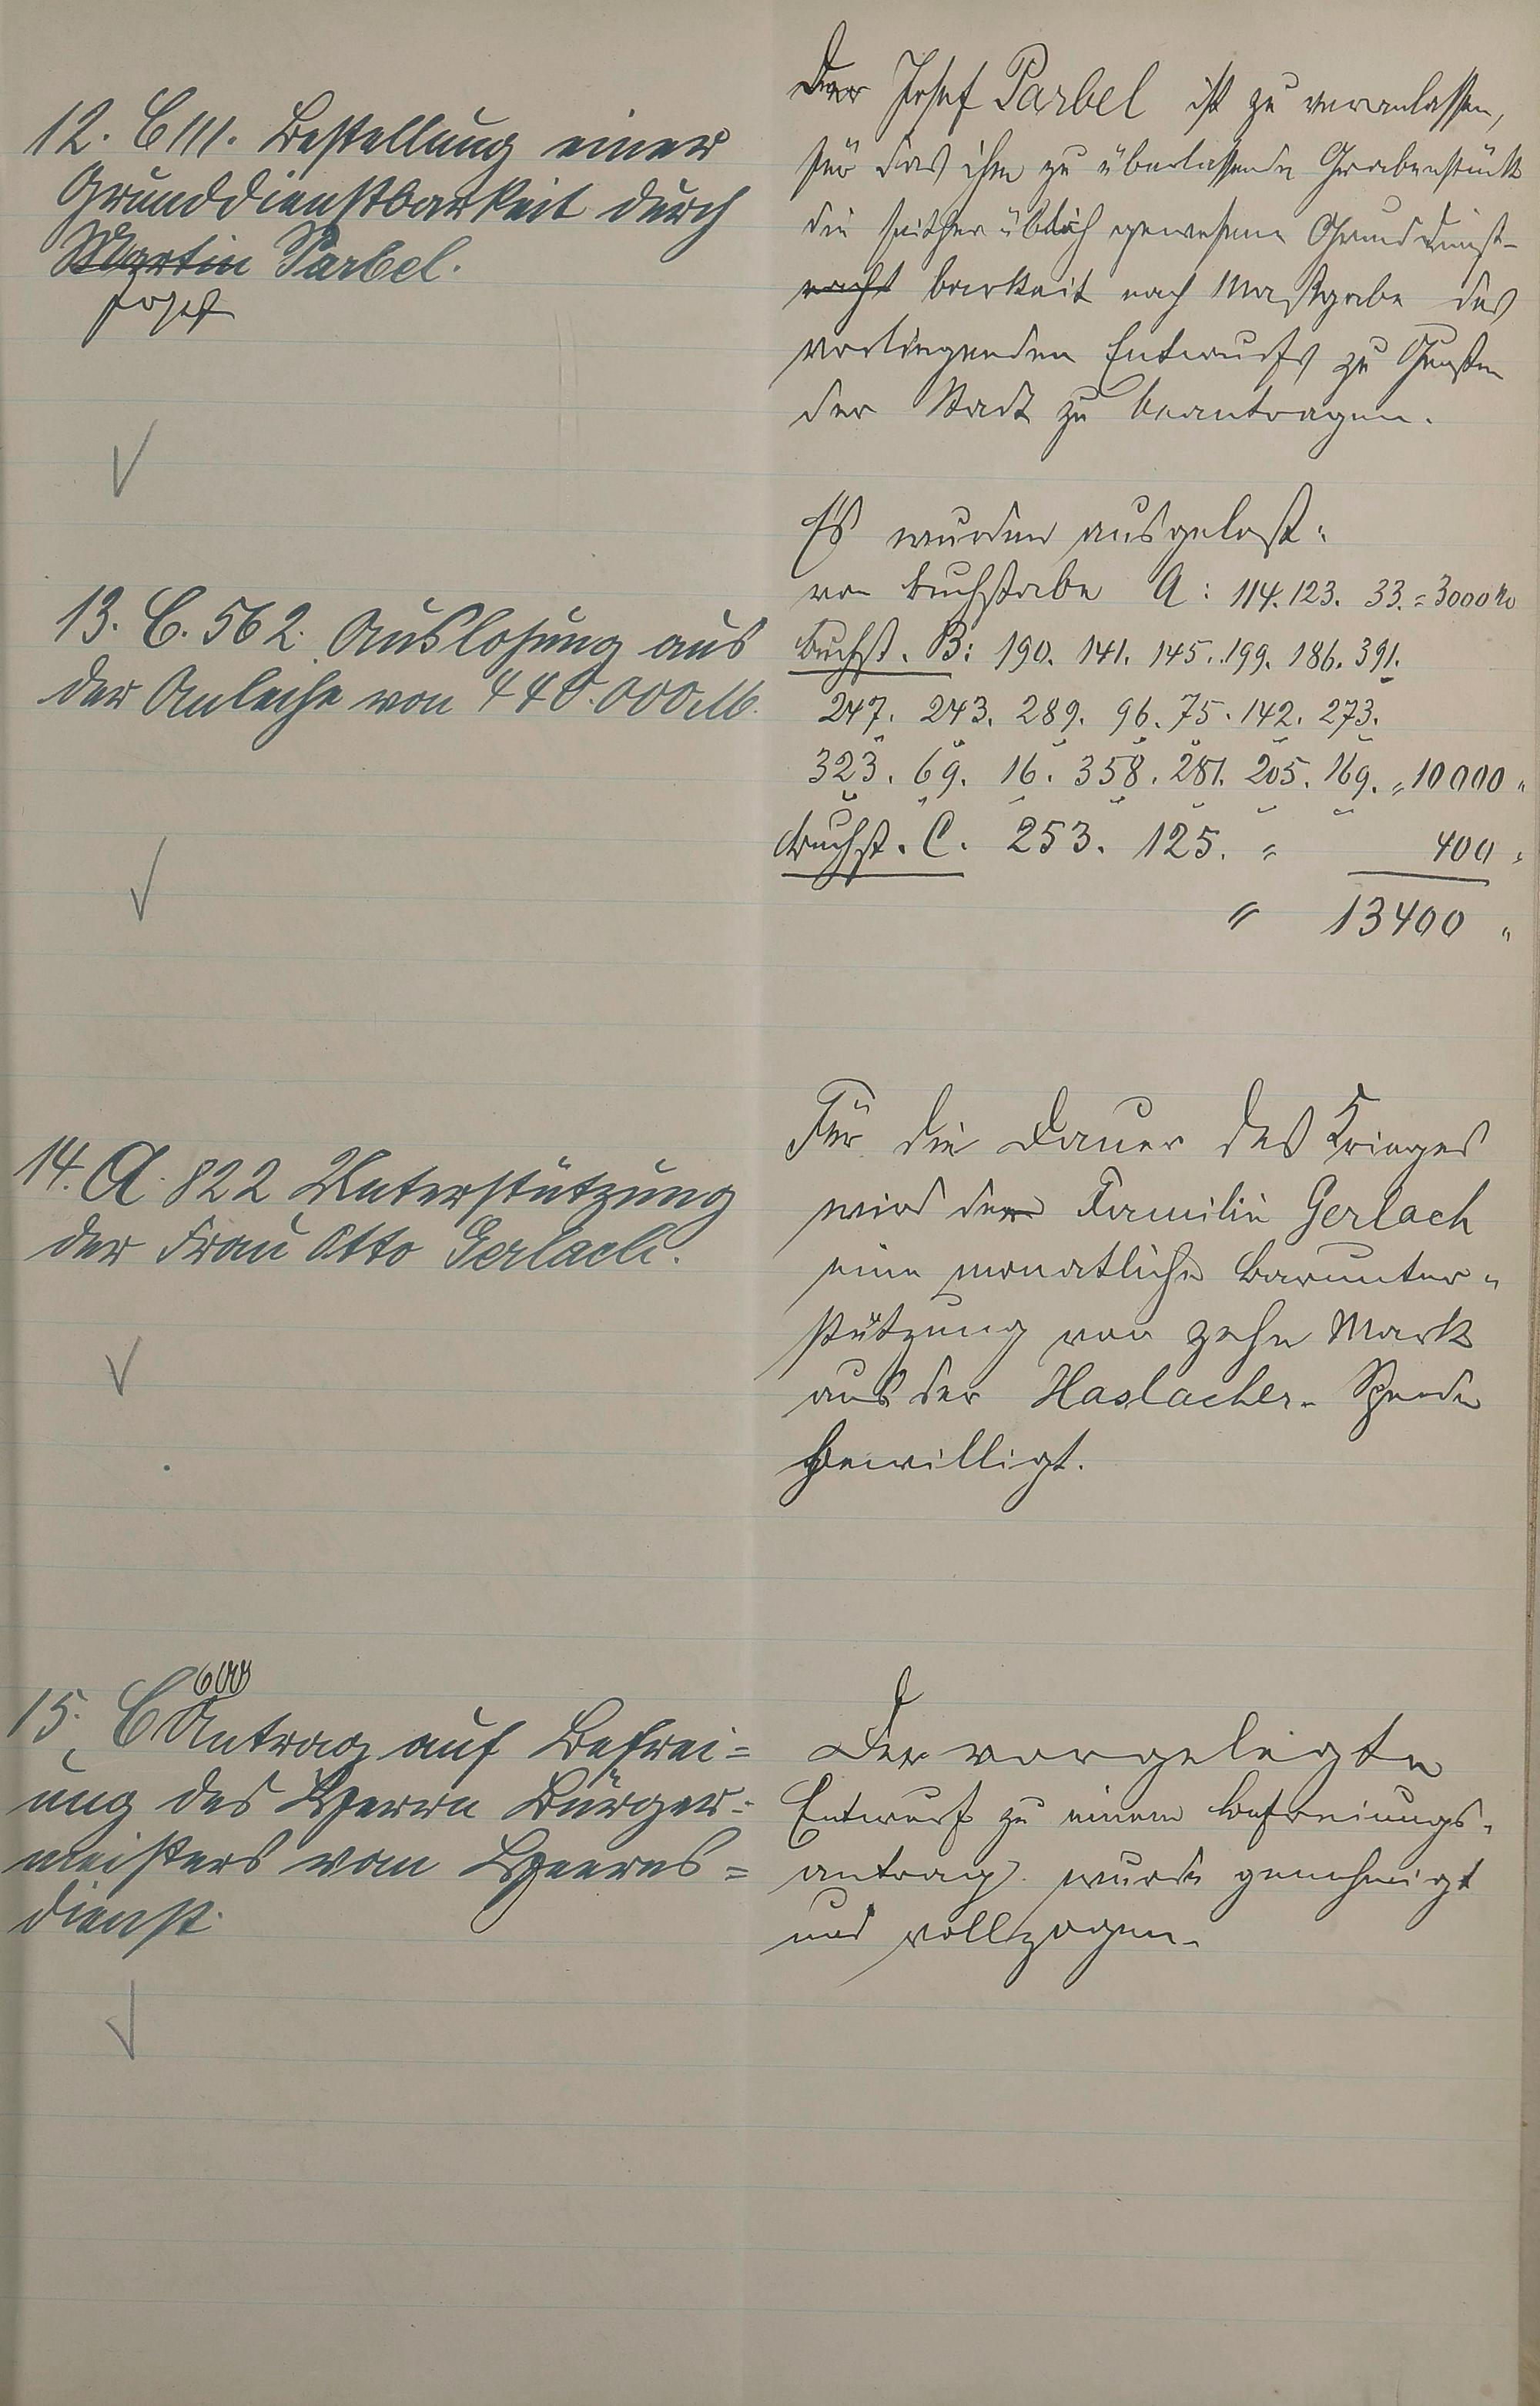 12. C 111. Bestellung einer
Grunddienstbarkeit durch
Martin Parbel.
Josef
Der Josef Parbel ist zu veranlassen,
für das ihm zu überlassende Grabenstück
die seither üblich gewesene Grunddienst-
recht barkeit nach Maßgabe des
vorliegenden Entwurfs zu Gunsten
der Stadt zu beantragen.
13. C. 562. Auslosung aus
der Anleihe von 440.000 M.
Es wurden ausgelost:
von Buchstabe A: 114. 123. 33. = 3000 M
Buchst. B: 190. 141. 145. 199. 186. 391.
247. 243. 289. 96. 75. 142. 273.
323. 69. 16. 358. 281. 205. 169. = 10000 "
Buchst. C. 253. 125. = 400 "
= 13400 "
14. A. 822 Unterstützung
der Frau Otto Gerlach.
Für die Dauer des Krieges
wird der Familie Gerlach
eine monatliche Barunter-
stützung von zehn Mark
aus der Haslacher-Spende
bewilligt.
15. C Antrag auf Befrei=
ung des Herrn Bürger=
meisters vom Heeres=
dienst.
Der vorgelegte
Entwurf zu einem Befreiungs-
antrag wurde genehmigt
und vollzogen.